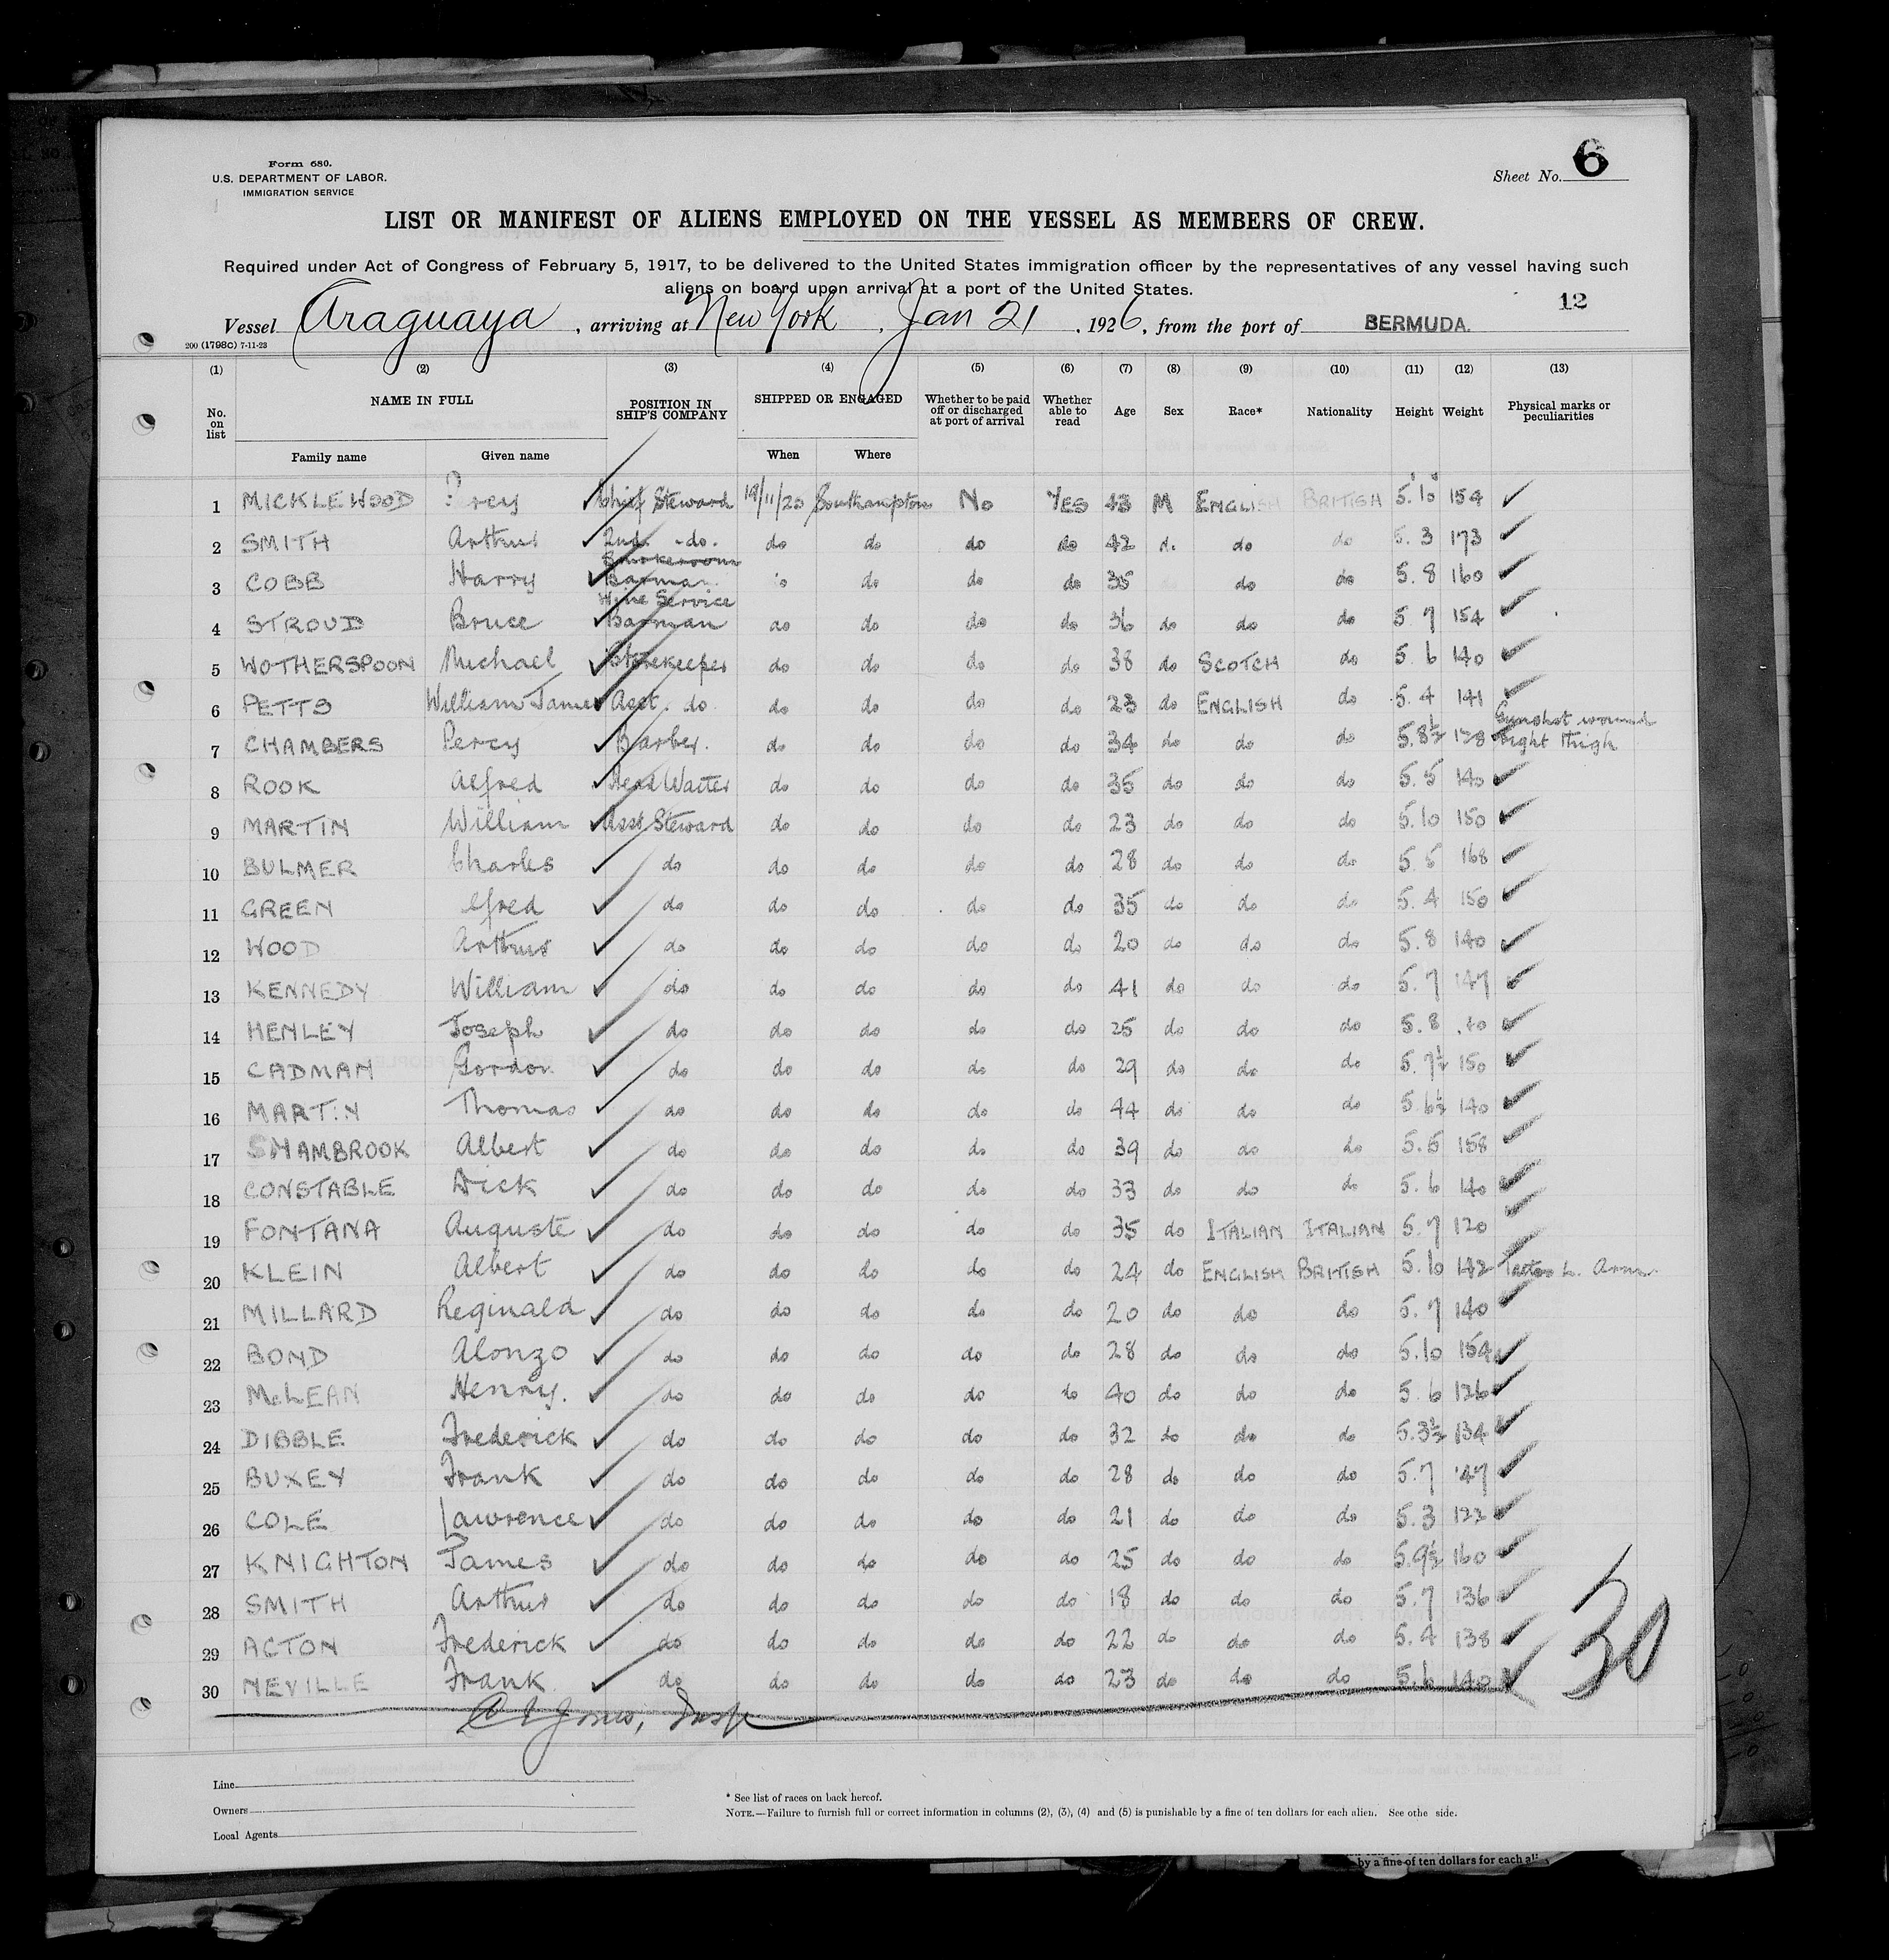 Form 680.
U.S. DEPARTMENT OF LABOR.
IMMIGRATION SERVICE
Sheet No. 6
LIST OR MANIFEST OF ALIENS EMPLOYED ON THE VESSEL AS MEMBERS OF CREW.
Required under Act of Congress of February 5, 1917, to be delivered to the United States immigration officer by the representatives of any vessel having such
aliens on board upon arrival at a port of the United States.
12
Vessel Araguaya, arriving at New York, Jan 21, 1926, from the port of BERMUDA.
200 (1798c) 7-11-23
(1) (2) (3) (4) (5) (6) (7) (8) (9) (10) (11) (12) (13)
No. on list NAME IN FULL POSITION IN SHIP'S COMPANY SHIPPED OR ENGAGED Whether to be paid off or discharged at port of arrival Whether able to read Age Sex Race* Nationality Height Weight Physical marks or peculiarities
Family name Given name When Where
1 MICKLEWOOD rcy Chief Steward Southampton No YES 43 M ENGLISH BRITISH 5.10 154
2 SMITH Arthur 2nd. -do. do do do do 42 do do 5.3 173
3 COBB Harry Smokeroom Barman do do do 35 do do 5.8 160
4 STROUD Bruce Wine Service Barman do do do do 36 do do do 5 7 154
5 WOTHERSPOON Michael Storekeeper do do do do 38 do SCOTCH do 5 6 140
6 PETTS William James Asst. do. do do do do 23 do ENGLISH do 5.4 141
7 CHAMBERS Percy Barber. do do do do 34 do do do 5.8½ 138 Gunshot wound right thigh
8 ROOK Alfred Head Waiter do do do do 35 do do do 5.5 140
9 MARTIN William Asst. Steward do do do do 23 do do do 5.10 150
10 BULMER Charles do do do do do 28 do do do 5 5 168
11 GREEN lfred do do do do do 35 do do do 5.4 150
12 WOOD Arthur do do do do do 20 do do do 5.8 140
13 KENNEDY William do do do do do 41 do do do 5.7 147
14 HENLEY Joseph do do do do do 25 do do do 5.8 40
15 CADMAN Gordon do do do do do 29 do do do 5.7½ 150
16 MARTIN Thomas do do do do do 44 do do do 5 6½ 140
17 SHAMBROOK Albert do do do do do 39 do do do 5.5 158
18 CONSTABLE Dick do do do do do 33 do do do 5.6 140
19 FONTANA Auguste do do do do do 35 do ITALIAN ITALIAN 5.7 120
20 KLEIN Albert do do do do do 24 do ENGLISH BRITISH 5.10 142 Tattoo L. Arm.
21 MILLARD Reginald do do do do do 20 do do do 5.7 140
22 BOND Alonzo do do do do do 28 do do do 5.10 154
23 McLEAN Henry. do do do do do 40 do do do 5.6 126
24 DIBBLE Frederick do do do do do 32 do do do 5.3½ 134
25 BUXEY Frank do do do do do 28 do do do 5.7 147
26 COLE Lawrence do do do do do 21 do do do 5.3 122
27 KNIGHTON James do do do do do 25 do do do 5.9½ 160
28 SMITH Arthur do do do do do 18 do do do 5.7 136
29 ACTON Frederick do do do do do 22 do do do 5.4 138
30 NEVILLE Frank do do do do do 23 do do do 5.6 140
30
Jones, Insp
Line
Owners
Local Agents
* See list of races on back hereof.
NOTE.—Failure to furnish full or correct information in columns (2), (3), (4) and (5) is punishable by a fine of ten dollars for each alien. See othe side.
by a fine of ten dollars for each ali